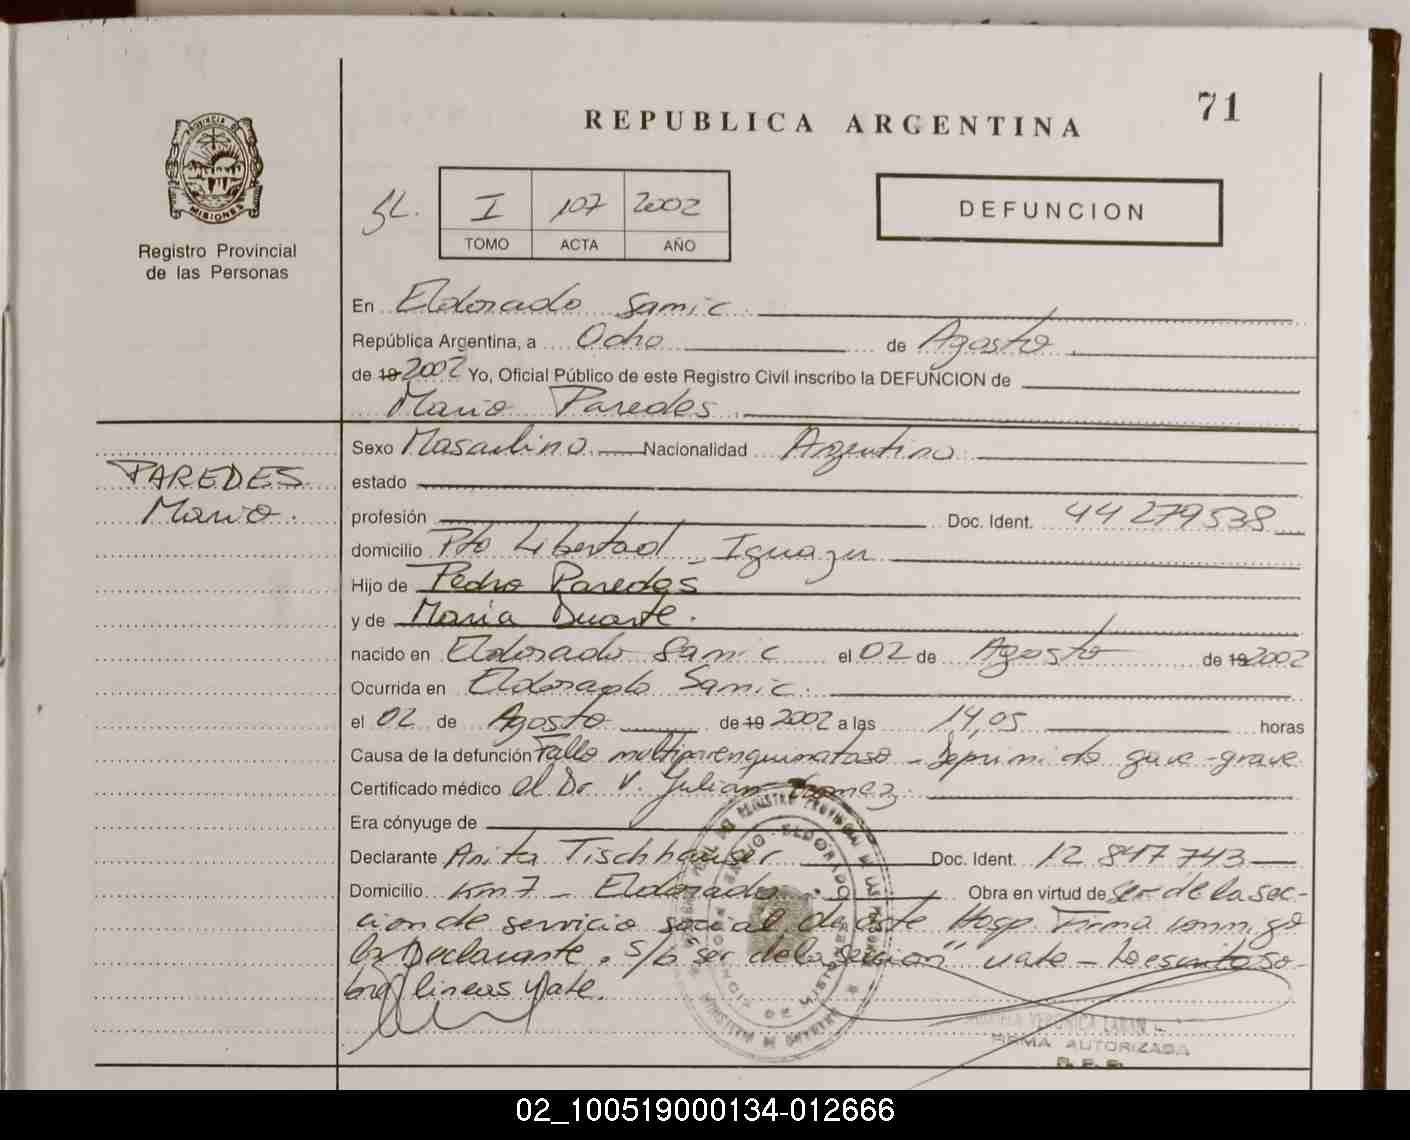 71
REPUBLICA ARGENTINA
PROVINCIA DE
MISIONES
Registro Provincial
de las Personas
I 107 2002
TOMO ACTA AÑO
DEFUNCION
En Eldorado Samic
República Argentina, a Ocho de Agosto
de 19 2002 Yo, Oficial Público de este Registro Civil inscribo la DEFUNCION de
Mario Paredes
PAREDES
Mario.
Sexo Masculino Nacionalidad Argentino
estado
profesión Doc. Ident. 44 279538
domicilio Pto Libertad - Iguazu
Hijo de Pedro Paredes
y de Maria Duarte.
nacido en Eldorado Samic el 02 de Agosto de 19 2002
Ocurrida en Eldorado Samic.
el 02 de Agosto de 19 2002 a las 14,05 horas
Causa de la defunción Fallo multiparenquimatoso - Deprimido grave
Certificado médico el Dr V. Julian Gomez
Era cónyuge de
Declarante Anita Tischhauser Doc. Ident. 12 847 743
Domicilio Km 7 - Eldorado Obra en virtud de Ser de la sec-
cion de servicio social de este Hosp. Firma conmigo
la Declarante. S/b ser de la seccion" vale - Lo escrito so-
bre lineas vale.
FIRMA AUTORIZADA
02_100519000134-012666